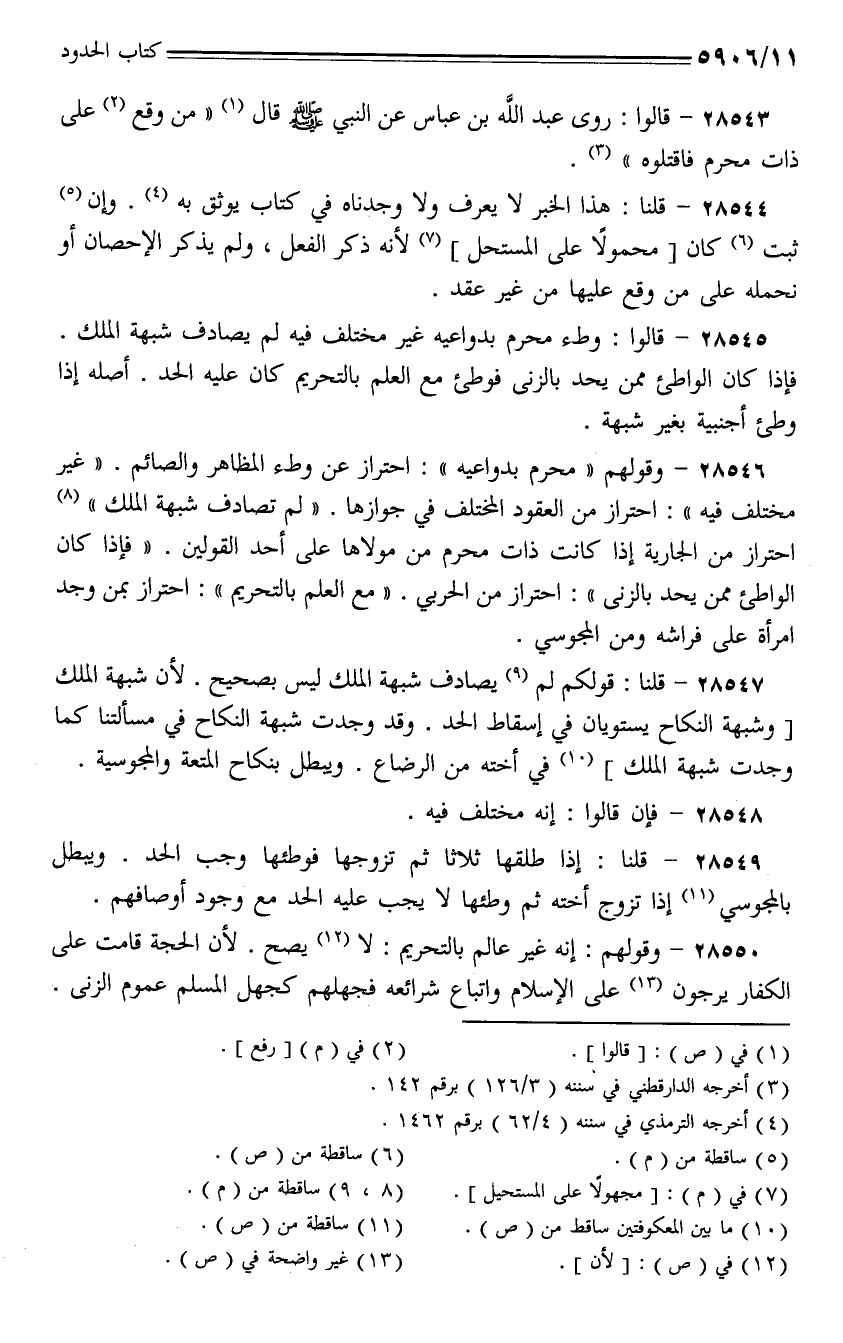 ٥٩٠٦/١١ كتاب الحدود
٢٨٥٤٣ - قالوا : روى عبد اللَّه بن عباس عن النبي ﷺ قال (١) « من وقع (٢) على
ذات محرم فاقتلوه » (٣) .
٢٨٥٤٤ - قلنا : هذا الخبر لا يعرف ولا وجدناه في كتاب يوثق به (٤) . وإن (٥)
ثبت (٦) كان [ محمولًا على المستحل ] (٧) لأنه ذكر الفعل ، ولم يذكر الإحصان أو
نحمله على من وقع عليها من غير عقد .
٢٨٥٤٥ - قالوا : وطء محرم بدواعيه غير مختلف فيه لم يصادف شبهة الملك .
فإذا كان الواطئ ممن يحد بالزنى فوطئ مع العلم بالتحريم كان عليه الحد . أصله إذا
وطئ أجنبية بغير شبهة .
٢٨٥٤٦ - وقولهم « محرم بدواعيه » : احتراز عن وطء المظاهر والصائم . « غير
مختلف فيه » : احتراز من العقود المختلف في جوازها . « لم تصادف شبهة الملك » (٨)
احتراز من الجارية إذا كانت ذات محرم من مولاها على أحد القولين . « فإذا كان
الواطئ ممن يحد بالزنى » : احتراز من الحربي . « مع العلم بالتحريم » : احتراز بمن وجد
امرأة على فراشه ومن المجوسي .
٢٨٥٤٧ - قلنا : قولكم لم (٩) يصادف شبهة الملك ليس بصحيح . لأن شبهة الملك
[ وشبهة النكاح يستويان في إسقاط الحد . وقد وجدت شبهة النكاح في مسألتنا كما
وجدت شبهة الملك ] (١٠) في أخته من الرضاع . ويبطل بنكاح المتعة والمجوسية .
٢٨٥٤٨ - فإن قالوا : إنه مختلف فيه .
٢٨٥٤٩ - قلنا : إذا طلقها ثلاثا ثم تزوجها فوطئها وجب الحد . ويبطل
بالمجوسي (١١) إذا تزوج أخته ثم وطئها لا يجب عليه الحد مع وجود أوصافهم .
٢٨٥٥٠ - وقولهم : إنه غير عالم بالتحريم : لا (١٢) يصح . لأن الحجة قامت على
الكفار يرجون (١٣) على الإسلام واتباع شرائعه فجهلهم كجهل المسلم عموم الزنى .
(١) في ( ص ) : [ قالوا ] . (٢) في ( م ) [ رفع ] .
(٣) أخرجه الدارقطني في سننه ( ١٢٦/٣ ) برقم ١٤٢ .
(٤) أخرجه الترمذي في سننه ( ٦٢/٤ ) برقم ١٤٦٢ .
(٥) ساقطة من ( م ) . (٦) ساقطة من ( ص ) .
(٧) في ( م ) : [ مجهولًا على المستحيل ] . (٨ ، ٩) ساقطة من ( م ) .
(١٠) ما بين المعكوفتين ساقط من ( ص ) . (١١) ساقطة من ( ص ) .
(١٢) في ( ص ) : [ لأن ] . (١٣) غير واضحة في ( ص ) .